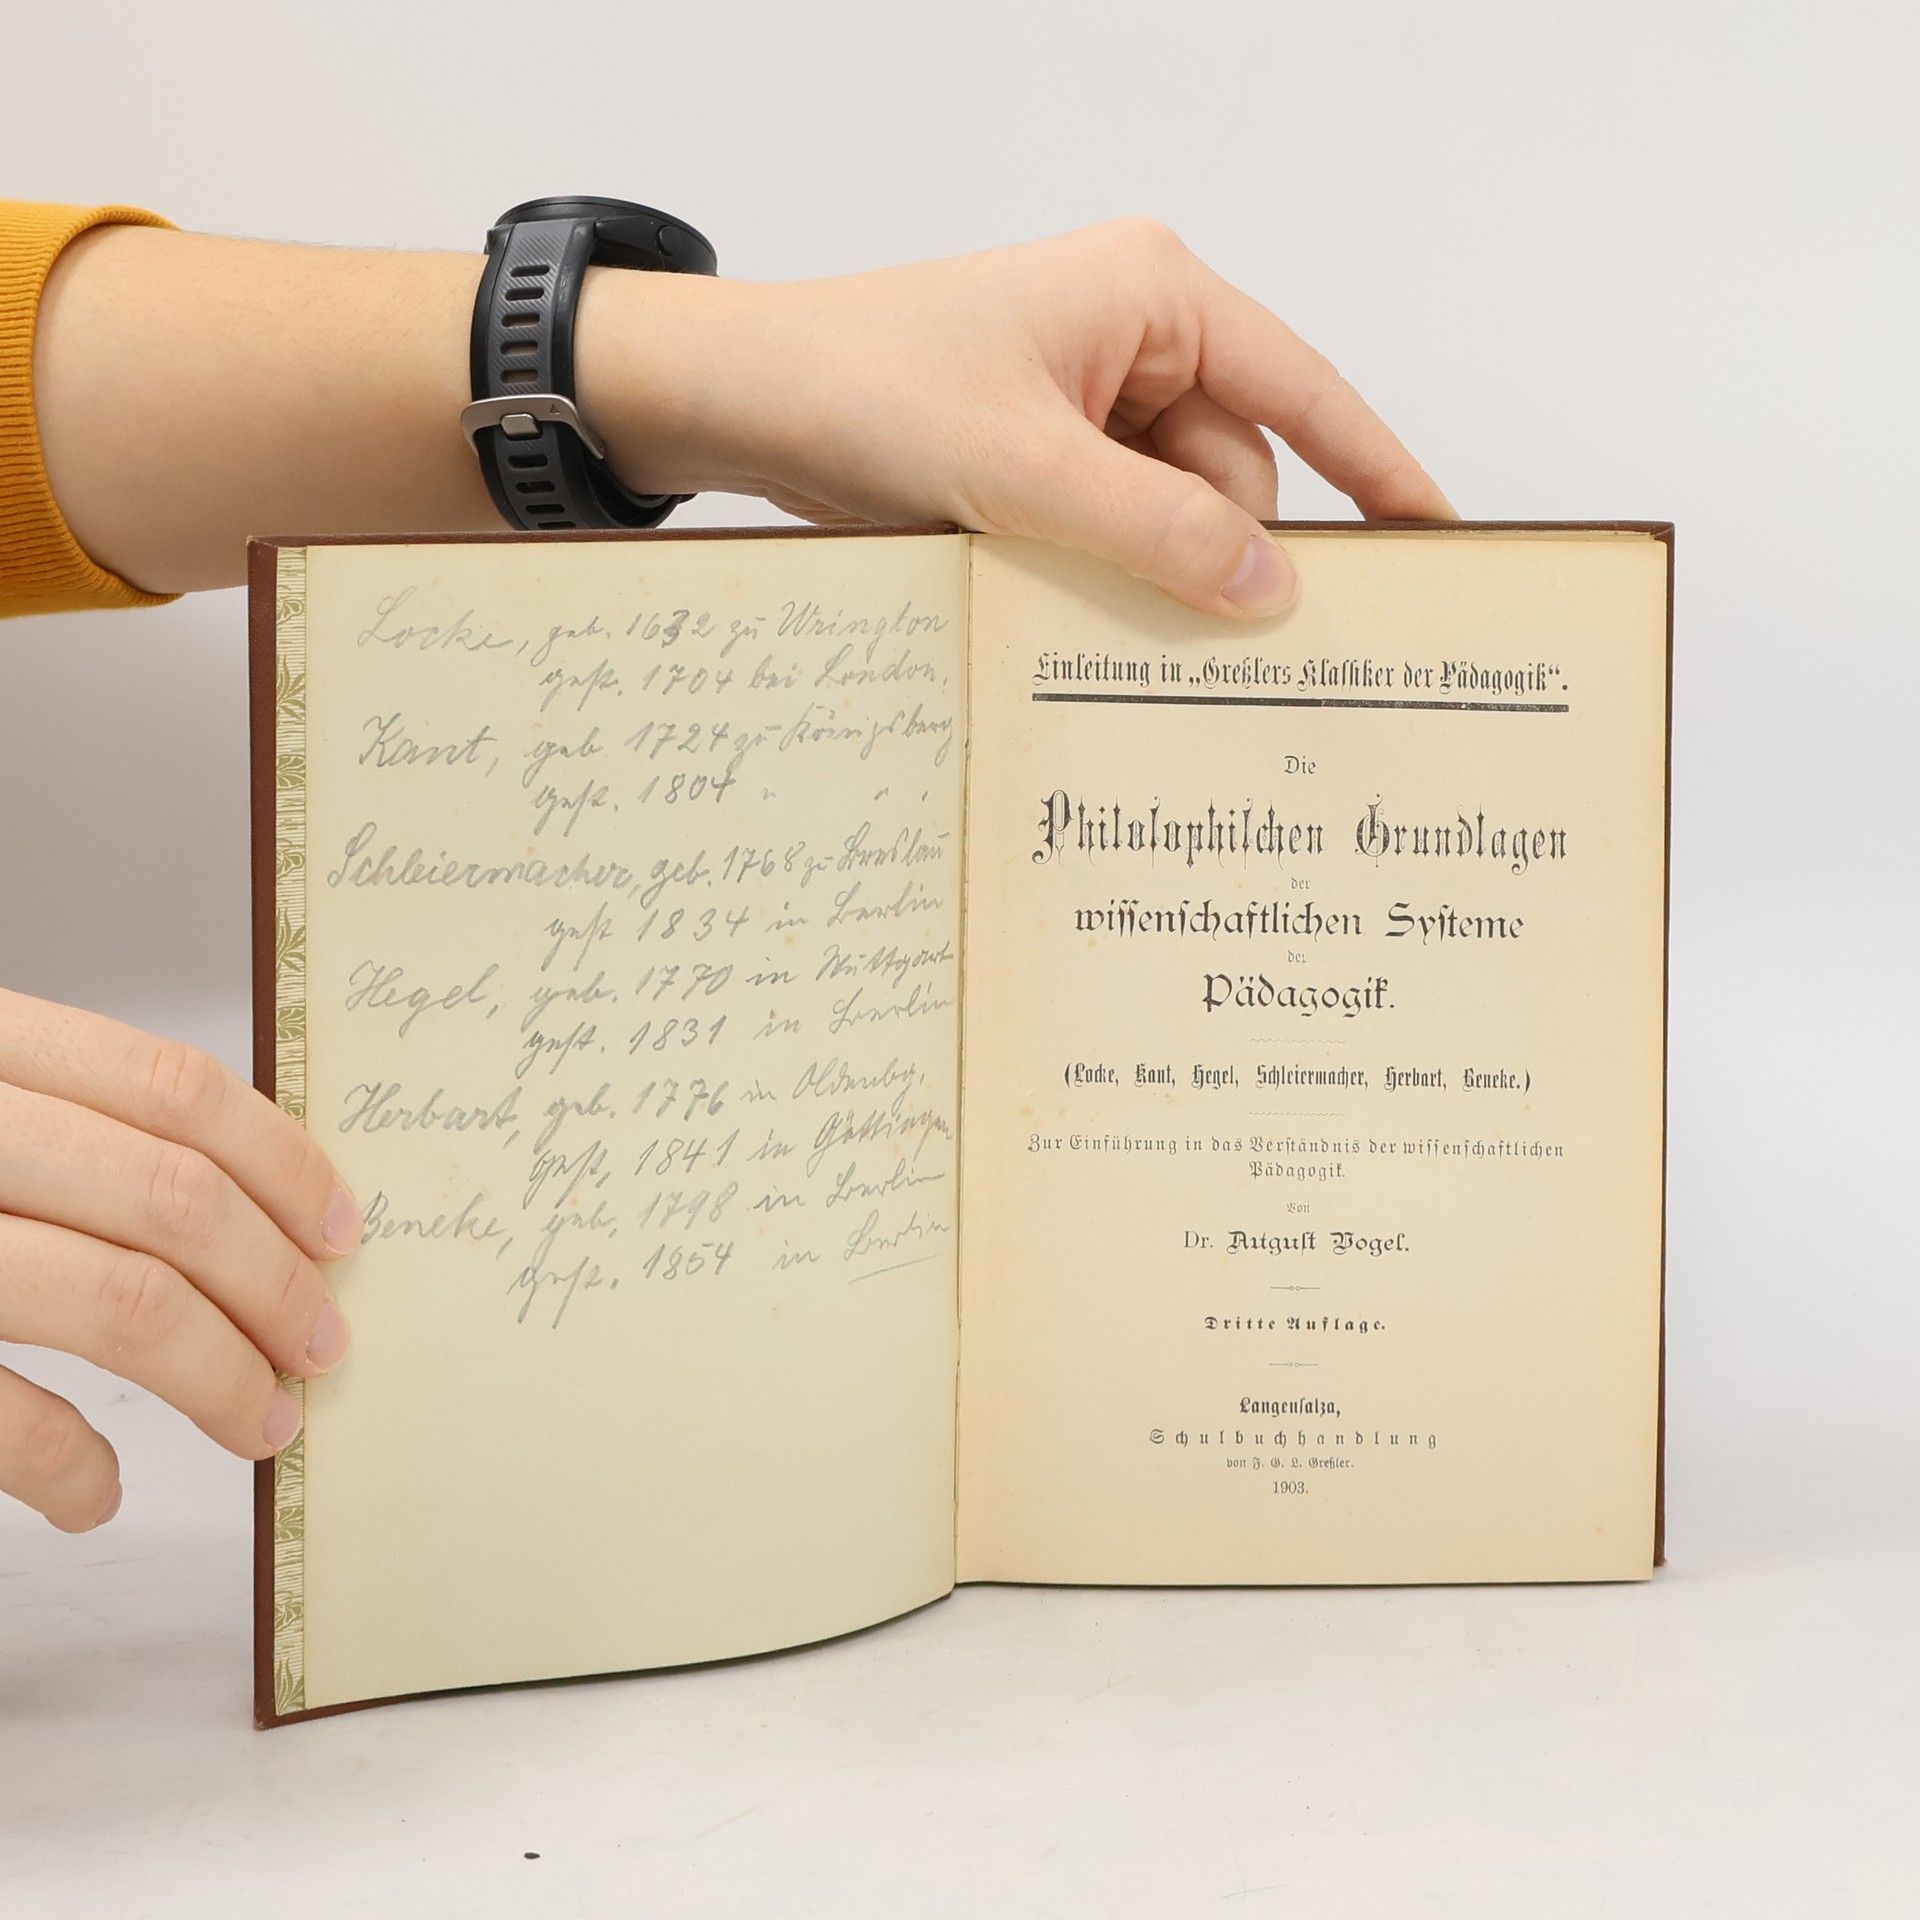 Locke, geb. 1632 zu Wrington
gest. 1704 bei London.
Kant, geb 1724 zu Königsberg
gest. 1804 " " .
Schleiermacher, geb. 1768 zu Breslau
gest 1834 in Berlin
Hegel, geb. 1770 in Stuttgart
gest. 1831 in Berlin
Herbart, geb. 1776 in Oldenbg.
gest, 1841 in Göttingen
Beneke, geb. 1798 in Berlin
gest. 1854 in Berlin
Einleitung in „Greßlers Klassiker der Pädagogik“.
Die
Philosophischen Grundlagen
der
wissenschaftlichen Systeme
der
Pädagogik.
(Locke, Kant, Hegel, Schleiermacher, Herbart, Beneke.)
Zur Einführung in das Verständnis der wissenschaftlichen
Pädagogik.
Von
Dr. August Vogel.
Dritte Auflage.
Langensalza,
Schulbuchhandlung
von F. G. L. Greßler.
1903.